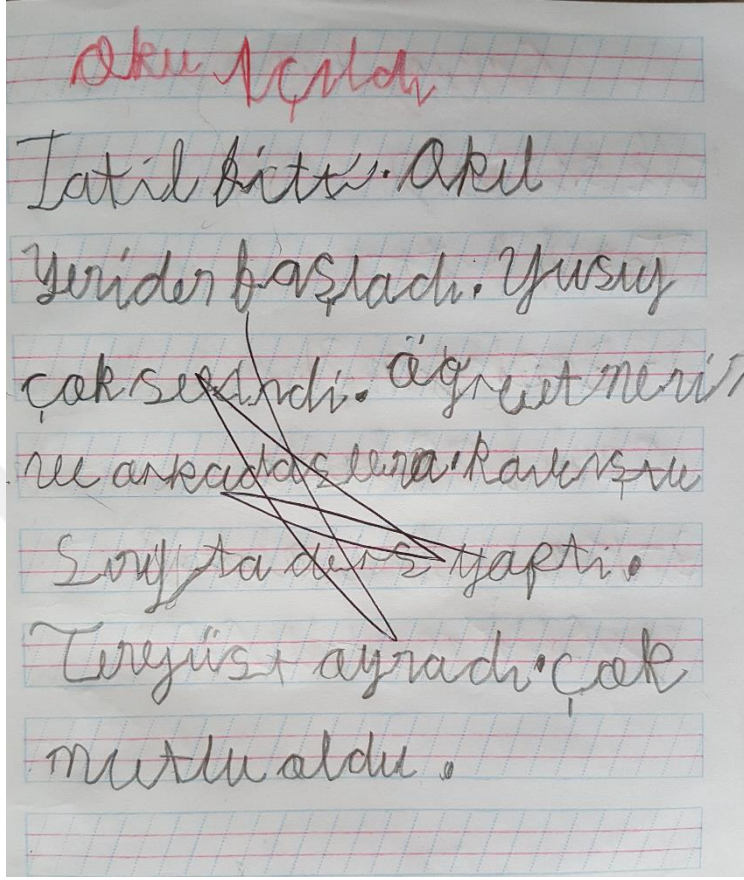 Oku Açıldı
Tatil bitti. Okul
Yeniden başladı. Yusuf
çok sevindi. Öğretmenin
ve arkadaşlarına kavuştu
Sınıfta ders yaptı.
Teneffüst oynadı. Çok
mutlu oldu.